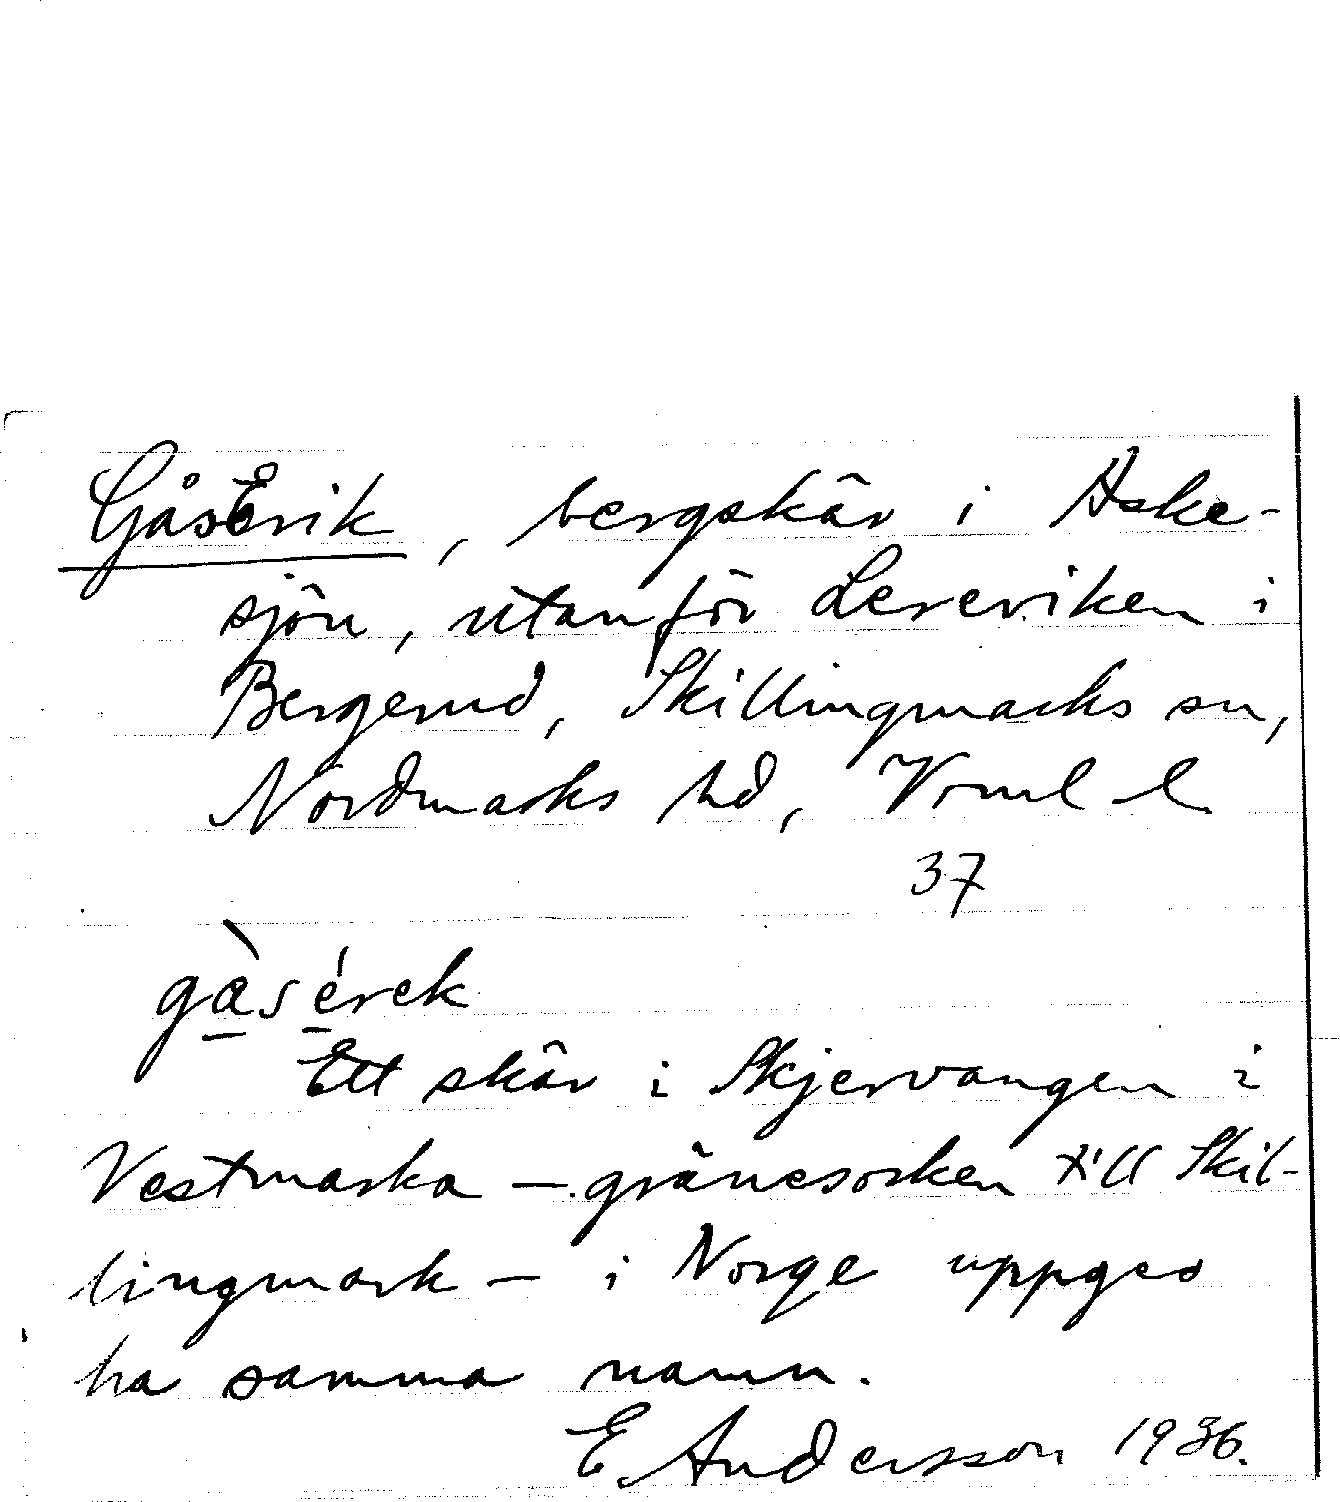 GåsErik, bergskär i Aske-
sjön, utanför Lereviken i
Bergerud, Skillingmarks sn,
Nordmarks hd, Vrml l
37
gàsérek
Ett skär i Skjervangen i
Vestmarka – gränssocken till Skil-
lingmark – i Norge uppges
ha samma namn.
E Andersson 1936.